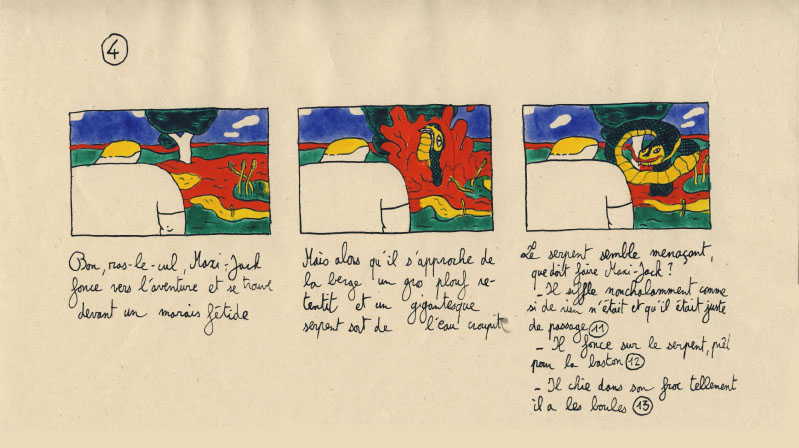 4
Bon, ras-le-cul, Maxi-Jack
fonce vers l'aventure et se trouve
devant un marais fétide
Mais alors qu'il s'approche de
la berge un gro plouf re-
tentit et un gigantesque
serpent sort de l'eau croupit
Le serpent semble menaçant,
que doit faire Maxi-Jack ?
- Il siffle nonchalamment comme
si de rien n'était et qu'il était juste
de passage 11
- Il fonce sur le serpent, prêt
pour la baston 12
- Il chie dans son froc tellement
il a les boules 13